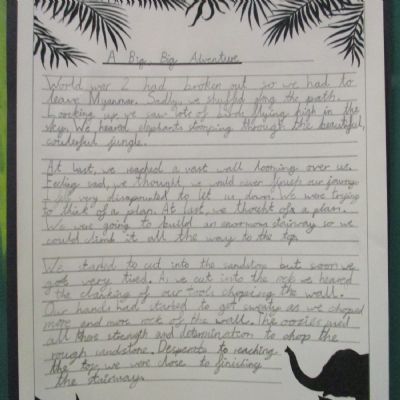 A Big, Big Adventure
World war 2 had broken out so we had to
leave Myanmar. Sadly, we shuffled along the path.
Looking up we saw lots of birds flying high in the
sky. We heared elephants stomping through the beautiful,
colourful jungle.
At last, we reached a vast wall looming over us.
Feeling sad, we thought we would never finish our journey.
I felt very disapointed to let us down. We were trying
to think of a plan. At last, we thought of a plan.
We were going to build an enormous stairway so we
could climb it all the way to the top.
We started to cut into the sandstone but soon we
got very tired. As we cut into the rock we heared
the clanking of our tools chopping the wall.
Our hands had started to get sweaty as we choped
more and more rock of the wall. The oozies used
all there strength and determination to chop the
rough sandstone. Desperate to reaching
the top, we were close to finishing
the stairway.